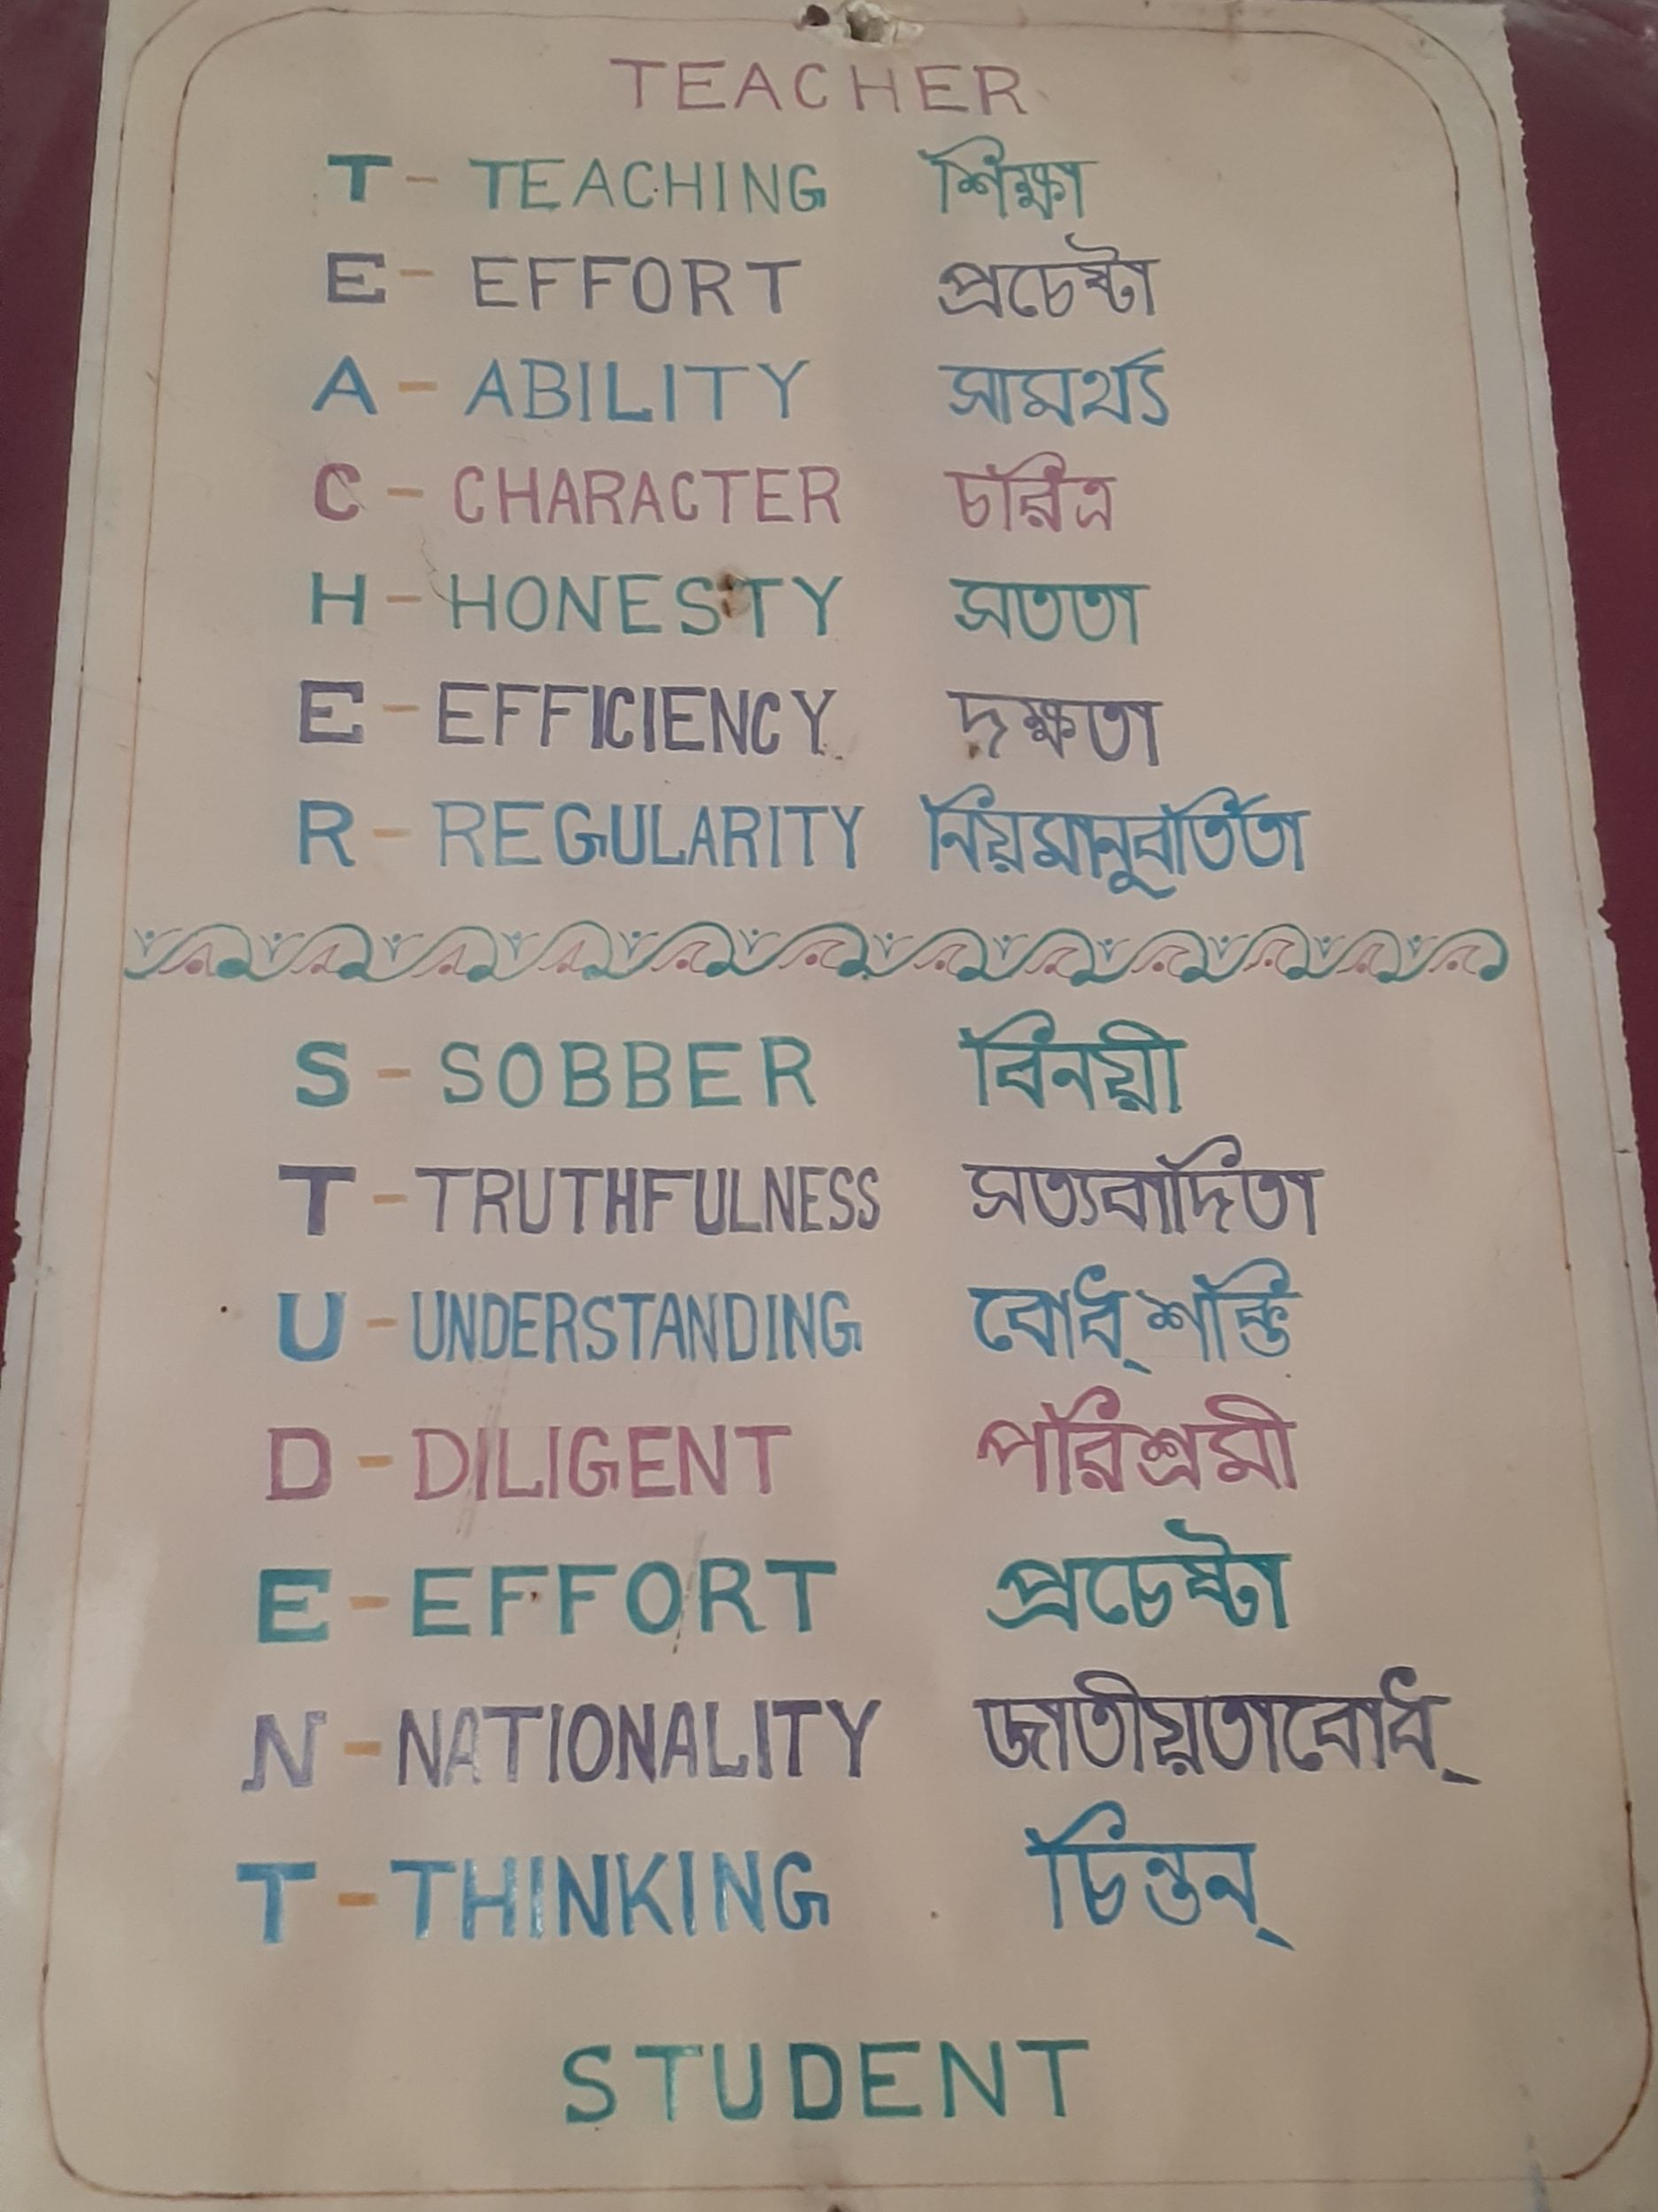 TEACHER
T - TEACHING শিক্ষা
E - EFFORT প্রচেষ্টা
A - ABILITY সামর্থ্য
C - CHARACTER চরিত্র
H - HONESTY সততা
E - EFFICIENCY দক্ষতা
R - REGULARITY নিয়মানুবর্তিতা
S - SOBBER বিনয়ী
T - TRUTHFULNESS সত্যবাদিতা
U - UNDERSTANDING বোধ্ শক্তি
D - DILIGENT পরিশ্রমী
E - EFFORT প্রচেষ্টা
N - NATIONALITY জাতীয়তাবোধ্
T - THINKING চিন্তন্
STUDENT